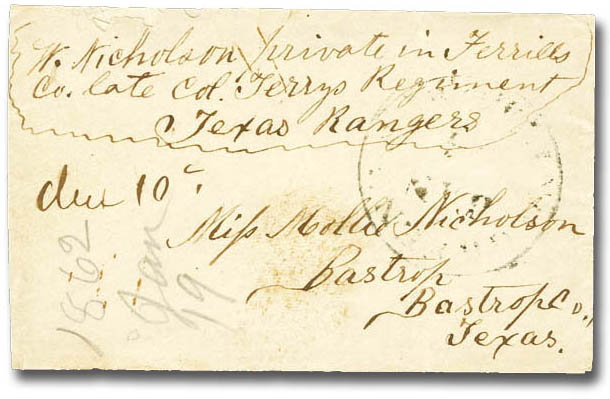 W. Nicholson private in Ferrills
Co. late Col. Terrys Regiment
Texas Rangers
due 10c
Miss Mollie Nicholson
Bastrop
Bastrop Co.,
Texas.
1862
Jan
19